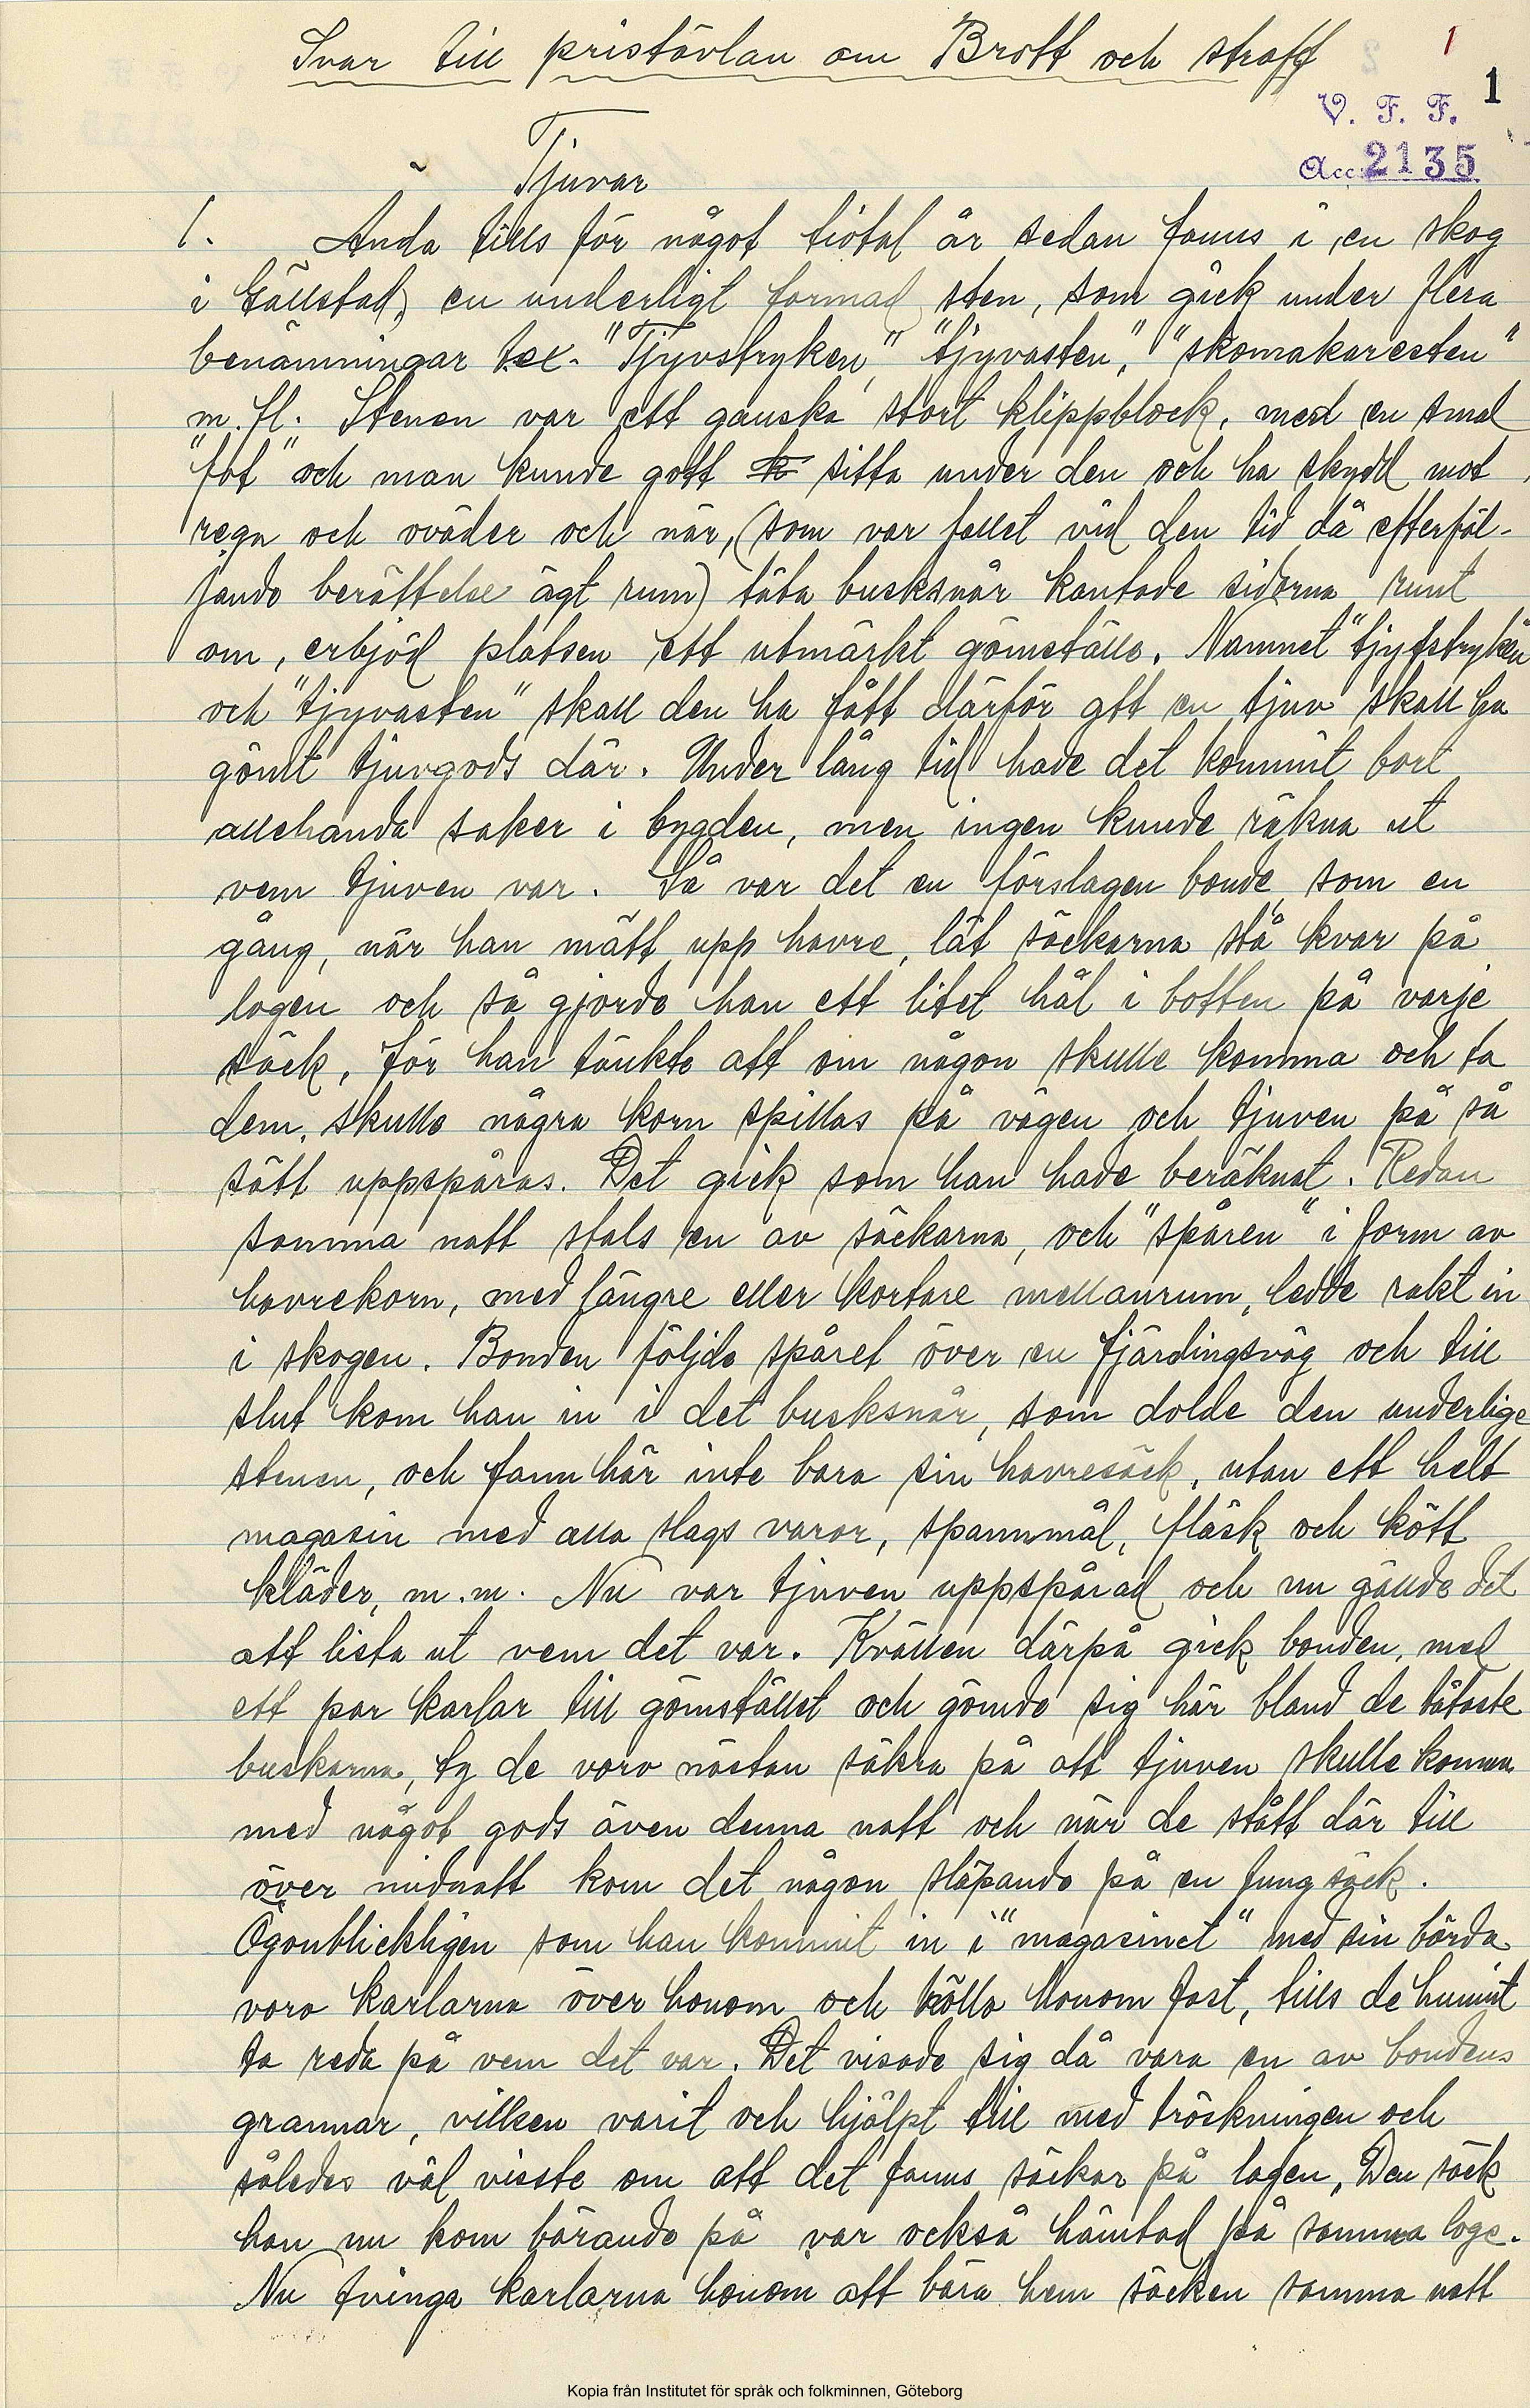 Svar till pristävlan om Brott och straff
1
1
V. F. F.
Acc. 2135
Tjuvar
1. Ända tills för något tiotal år sedan fanns i en skog
i Gällstad, en underligt formad sten, som gick under flera
benämningar t.ex. "Tjyvstryken", "tjyvasten", "skomakaresten"
m. fl. Stenen var ett ganska stort klippblock, med en smal
"fot" och man kunde gott sitta under den och ha skydd mot
regn och oväder och när, (som var fallet vid den tid då efterföl-
jande berättelse ägt rum) täta busksnår kantade sidorna runt
om, erbjöd platsen ett utmärkt gömställe. Namnet "tjyvstryken
och "tjyvasten" skall den ha fått därför att en tjuv skall ha
gömt tjuvgods där. Under lång tid hade det kommit bort
allehanda saker i bygden, men ingen kunde räkna ut
vem tjuven var. Så var det en förslagen bonde, som en
gång, när han mätt upp havre, lät säckarna stå kvar på
logen och så gjorde han ett litet hål i botten på varje
säck, för han tänkte att om någon skulle komma och ta
dem, skulle några korn spillas på vägen och tjuven på så
sätt uppspåras. Det gick som han hade beräknat. Redan
samma natt stals en av säckarna, och "spåren" i form av
havrekorn, med längre eller kortare mellanrum, ledde rakt in
i skogen. Bonden följde spåret över en fjärdingsväg och till
slut kom han in i det busksnår, som dolde den underlige
stenen, och fann här inte bara sin havresäck, utan ett helt
magasin med alla slags varor, spannmål, fläsk och kött
kläder, m.m. Nu var tjuven uppspårad och nu gällde det
att lista ut vem det var. Kvällen därpå gick bonden, med
ett par karlar till gömstället och gömde sig här bland de tätaste
buskarna, ty de voro nästan säkra på att tjuven skulle komma
med något gods även denna natt och när de stått där till
över midnatt kom det någon släpande på en tung säck.
Ögonblickligen som han kommit in i "magasinet" med sin börda
voro karlarna över honom och höllo honom fast, tills de hunnit
ta reda på vem det var. Det visade sig då vara en av bondens
grannar, vilken varit och hjälpt till med tröskningen och
således väl visste om att det fanns säckar på logen. Den säck
han nu kom bärande på var också hämtad på samma loge.
Nu tvinga karlarna honom att bära hem säcken samma natt
Kopia från Institutet för språk och folkminnen, Göteborg